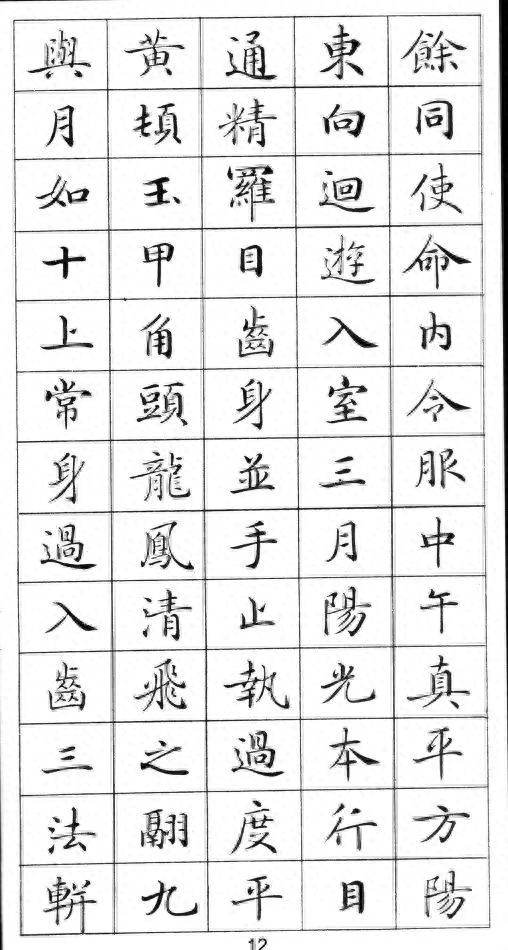 餘同使命内令服中午真平方陽
東向迴遊入室三月陽光本行目
通精羅目齒身並手止執過度平
黃頓玉甲角頭龍鳳清飛之翮九
與月如十上常身過入齒三法軿
12